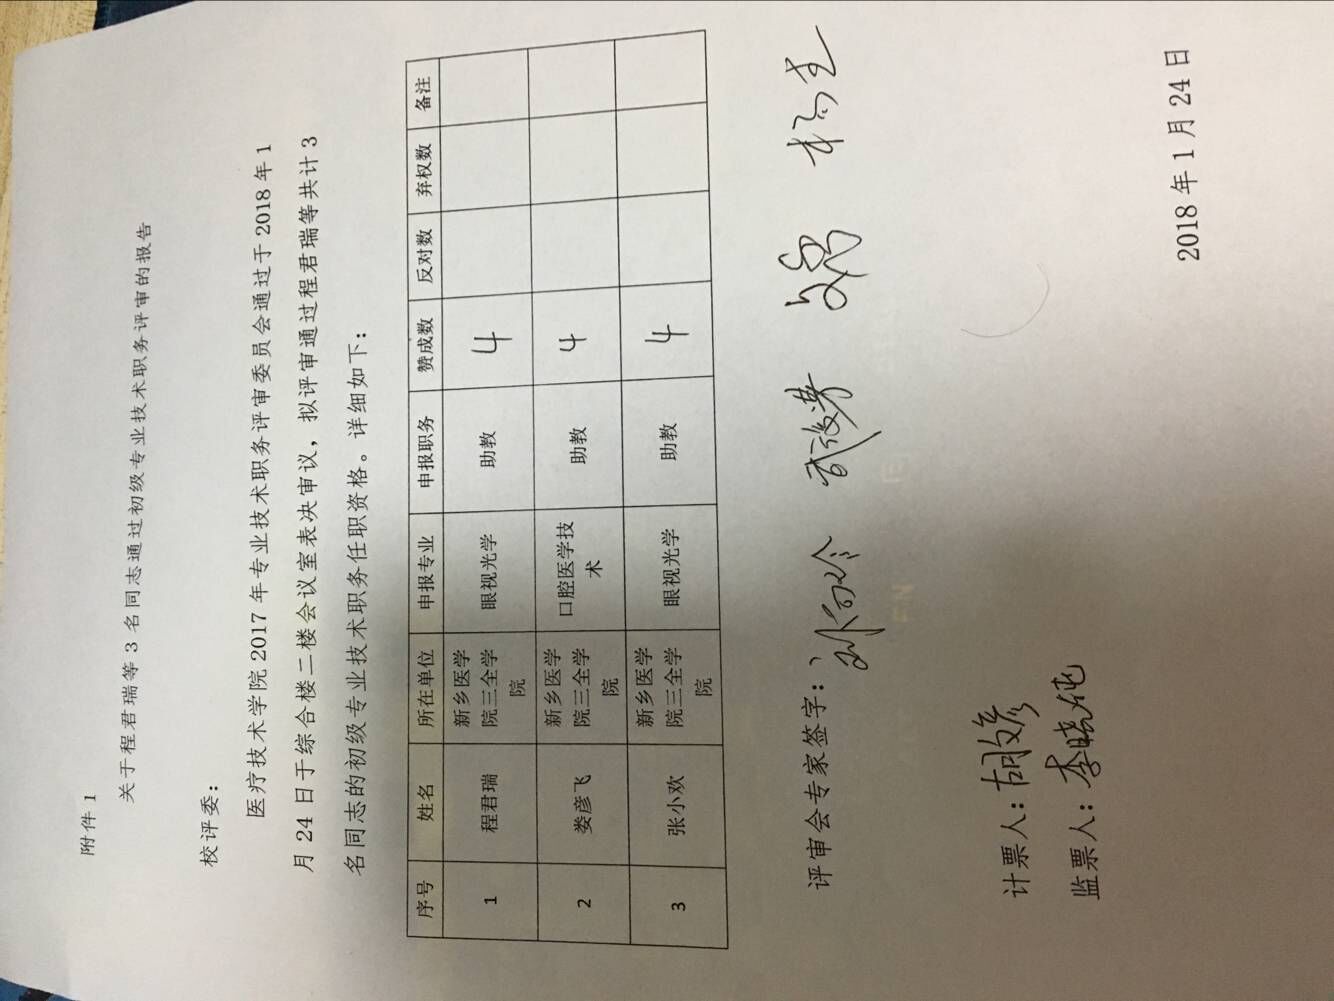 附件 1
关于程君瑞等 3 名同志通过初级专业技术职务评审的报告
校评委：
医疗技术学院 2017 年专业技术职务评审委员会通过于 2018 年 1
月 24 日于综合楼二楼会议室表决审议，拟评审通过程君瑞等共计 3
名同志的初级专业技术职务任职资格。详细如下：
序号 姓名 所在单位 申报专业 申报职务 赞成数 反对数 弃权数 备注
1 程君瑞 新乡医学院三全学院 眼视光学 助教 4
2 娄彦飞 新乡医学院三全学院 口腔医学技术 助教 4
3 张小欢 新乡医学院三全学院 眼视光学 助教 4
评审会专家签字：
计票人：
监票人：李晓纯
2018 年 1 月 24 日